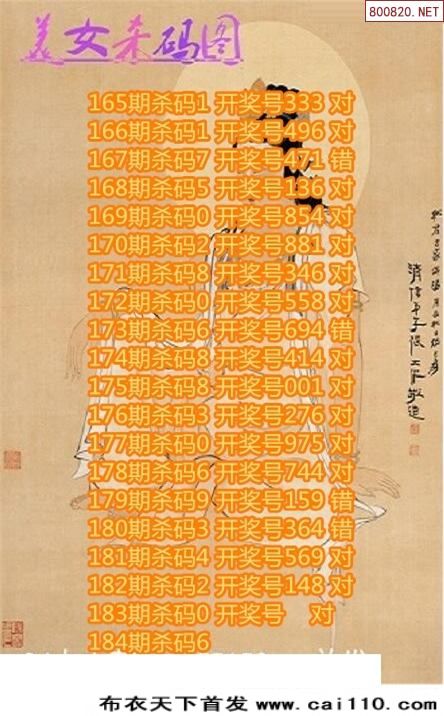 800820.NET
美女杀码图
165期杀码1 开奖号333 对
166期杀码1 开奖号496 对
167期杀码7 开奖号471 错
168期杀码5 开奖号136 对
169期杀码0 开奖号854 对
170期杀码2 开奖号881 对
171期杀码8 开奖号346 对
172期杀码0 开奖号558 对
173期杀码6 开奖号694 错
174期杀码8 开奖号414 对
175期杀码8 开奖号001 对
176期杀码3 开奖号276 对
177期杀码0 开奖号975 对
178期杀码6 开奖号744 对
179期杀码9 开奖号159 错
180期杀码3 开奖号364 错
181期杀码4 开奖号569 对
182期杀码2 开奖号148 对
183期杀码0 开奖号 对
184期杀码6
布衣天下首发 www.cai110.com